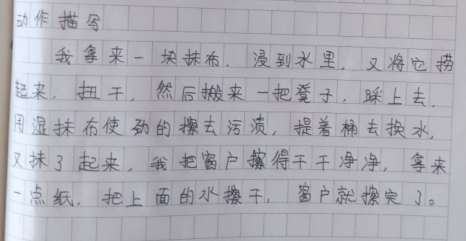 动作描写
我拿来一块抹布，浸到水里，又将它捞
起来，扭干，然后搬来一把凳子，踩上去，
用湿抹布使劲的擦去污渍，提着桶去换水，
又抹了起来，我把窗户擦得干干净净，拿来
一点纸，把上面的水擦干，窗户就擦完了。